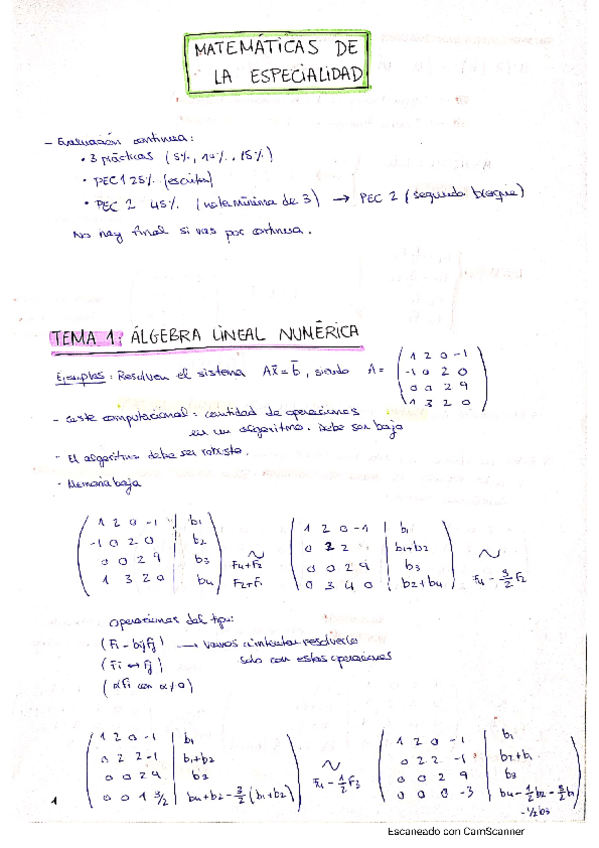 MATEMÁTICAS DE
LA ESPECIALIDAD
- Evaluación continua:
• 3 prácticas (5%, 10%, 15%)
• PEC 1 25% (escrito)
• PEC 2 45% (nota mínima de 3) → PEC 2 (segundo bloque)
No hay final si vas por continua.
TEMA 1: ÁLGEBRA LINEAL NUMÉRICA
Ejemplos: Resolver el sistema Ax̄ = b̄, siendo A = 
1 2 0 -1
-1 0 2 0
0 0 2 9
1 3 2 0
- coste computacional: cantidad de operaciones
en un algoritmo. Debe ser baja
- El algoritmo debe ser robusto.
- Memoria baja
1 2 0 -1 | b1
-1 0 2 0 | b2
0 0 2 9 | b3
1 3 2 0 | b4
~
F4+F2
F2+F1
1 2 0 -1 | b1
0 2 2 | b1+b2
0 0 2 9 | b3
0 3 4 0 | b2+b4
~
F4 - 3/2 F2
operaciones del tipo:
(Fi - bijFj) → vamos a intentar resolverlo
(Fi ↔ Fj) solo con estas operaciones
(αFi con α≠0)
1 2 0 -1 | b1
0 2 2 -1 | b1+b2
0 0 2 9 |
0 0 1 3/2 | b4+b2-3/2(b1+b2)
~
F4 - 1/2 F3
1 2 0 -1 | b1
0 2 2 -1 | b2+b1
0 0 2 9 | b3
0 0 0 -3 | b4-1/2b2-3/2b1
-1/2b3
1
Escaneado con CamScanner